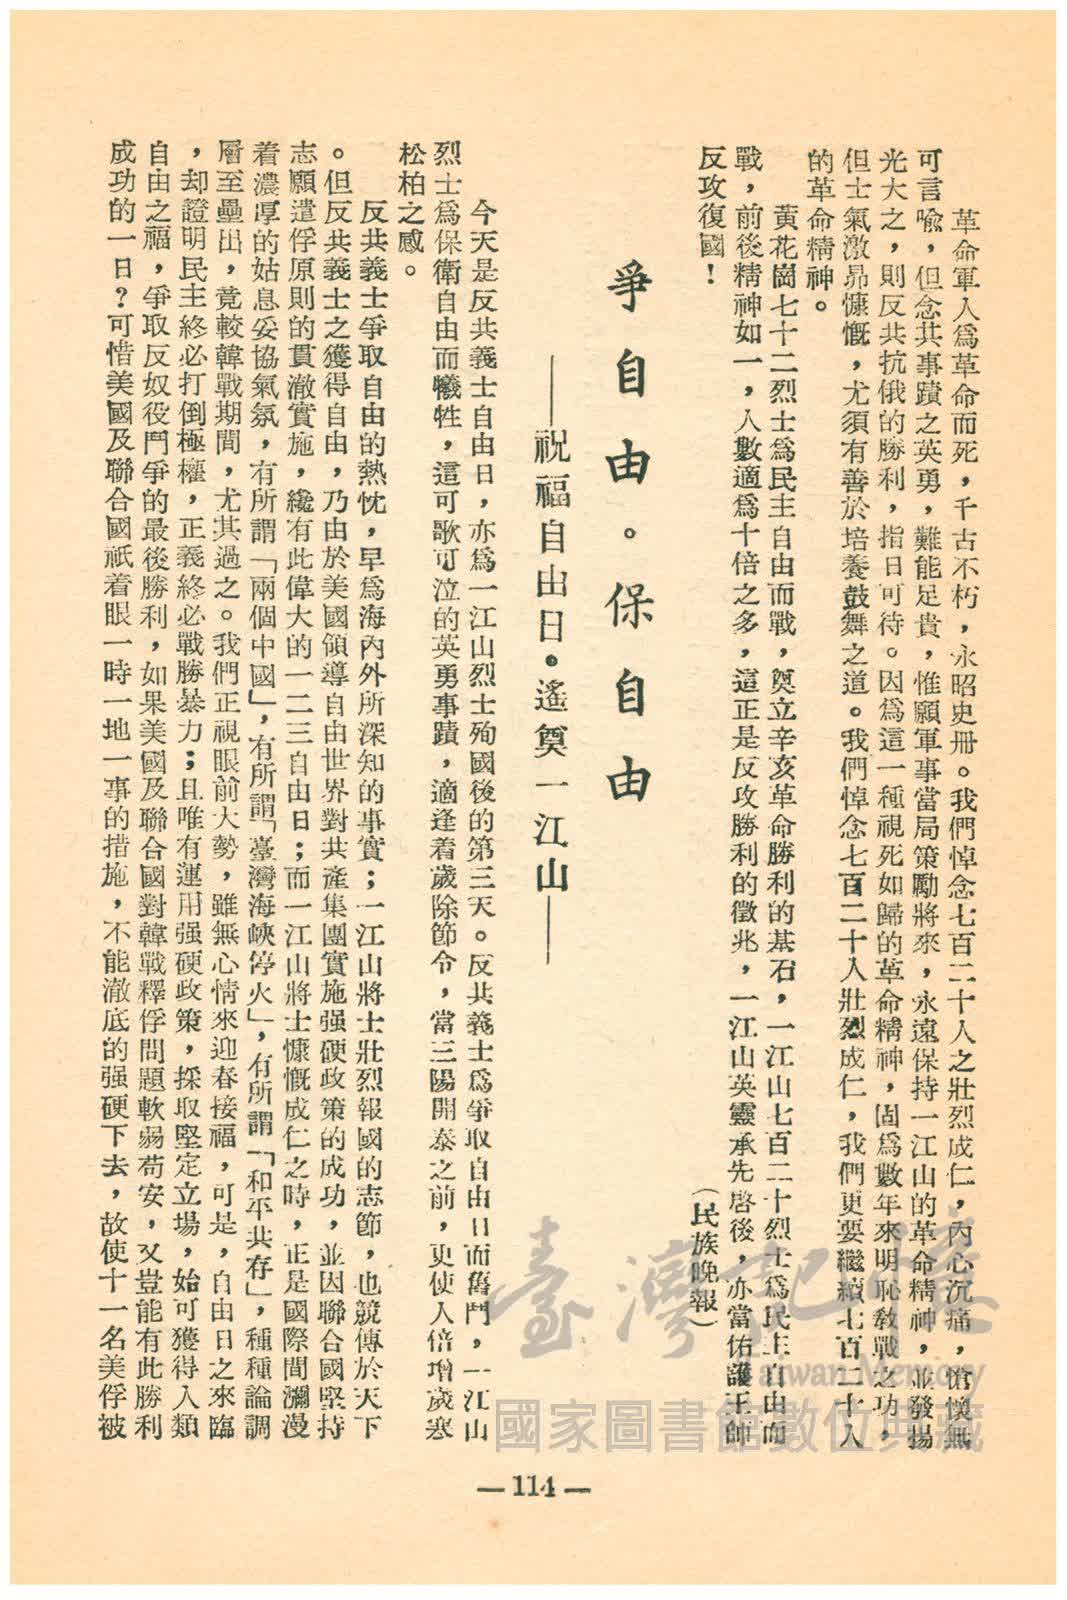 革命軍人爲革命而死，千古不朽，永昭史册。我們悼念七百二十人之壯烈成仁，內心沉痛，愴懷無
可言喩，但念其事蹟之英勇，難能足貴，惟願軍事當局策勵將來，永遠保持一江山的革命精神，並發揚
光大之，則反共抗俄的勝利，指日可待。因爲這一種視死如歸的革命精神，固爲數年來明恥敎戰之功，
但士氣激昻慷慨，尤須有善於培養鼓舞之道。我們悼念七百二十人壯烈成仁，我們更要繼續七百二十人
的革命精神。
黃花崗七十二烈士爲民主自由而戰，奠立辛亥革命勝利的基石，一江山七百二十烈士爲民主自由而
戰，前後精神如一，人數適爲十倍之多，這正是反攻勝利的徵兆，一江山英靈承先啓後，亦當佑護王師
反攻復國！
（民族晚報）
爭自由。保自由
——祝福自由日。遙奠一江山——
今天是反共義士自由日，亦爲一江山烈士殉國後的第三天。反共義士爲爭取自由日而舊鬥，一江山
烈士爲保衛自由而犧牲，這可歌可泣的英勇事蹟，適逢着歲除節令，當三陽開泰之前，更使人倍增歲寒
松柏之感。
反共義士爭取自由的熱忱，早爲海內外所深知的事實；一江山將士壯烈報國的志節，也競傳於天下
。但反共義士之獲得自由，乃由於美國領導自由世界對共產集團實施强硬政策的成功，並因聯合國堅持
志願遣俘原則的貫澈實施，纔有此偉大的一二三自由日；而一江山將士慷慨成仁之時，正是國際間瀰漫
着濃厚的姑息妥協氣氛，有所謂「兩個中國」，有所謂「臺灣海峽停火」，有所謂「和平共存」，種種論調
層至壘出，竟較韓戰期間，尤其過之。我們正視眼前大勢，雖無心情來迎春接福，可是，自由日之來臨
，却證明民主終必打倒極權，正義終必戰勝暴力；且唯有運用强硬政策，採取堅定立場，始可獲得人類
自由之福，爭取反奴役鬥爭的最後勝利，如果美國及聯合國對韓戰釋俘問題軟弱苟安，又豈能有此勝利
成功的一日？可惜美國及聯合國祇着眼一時一地一事的措施，不能澈底的强硬下去，故使十一名美俘被
— 114 —
臺灣記憶
Taiwan Memory
國家圖書館數位典藏